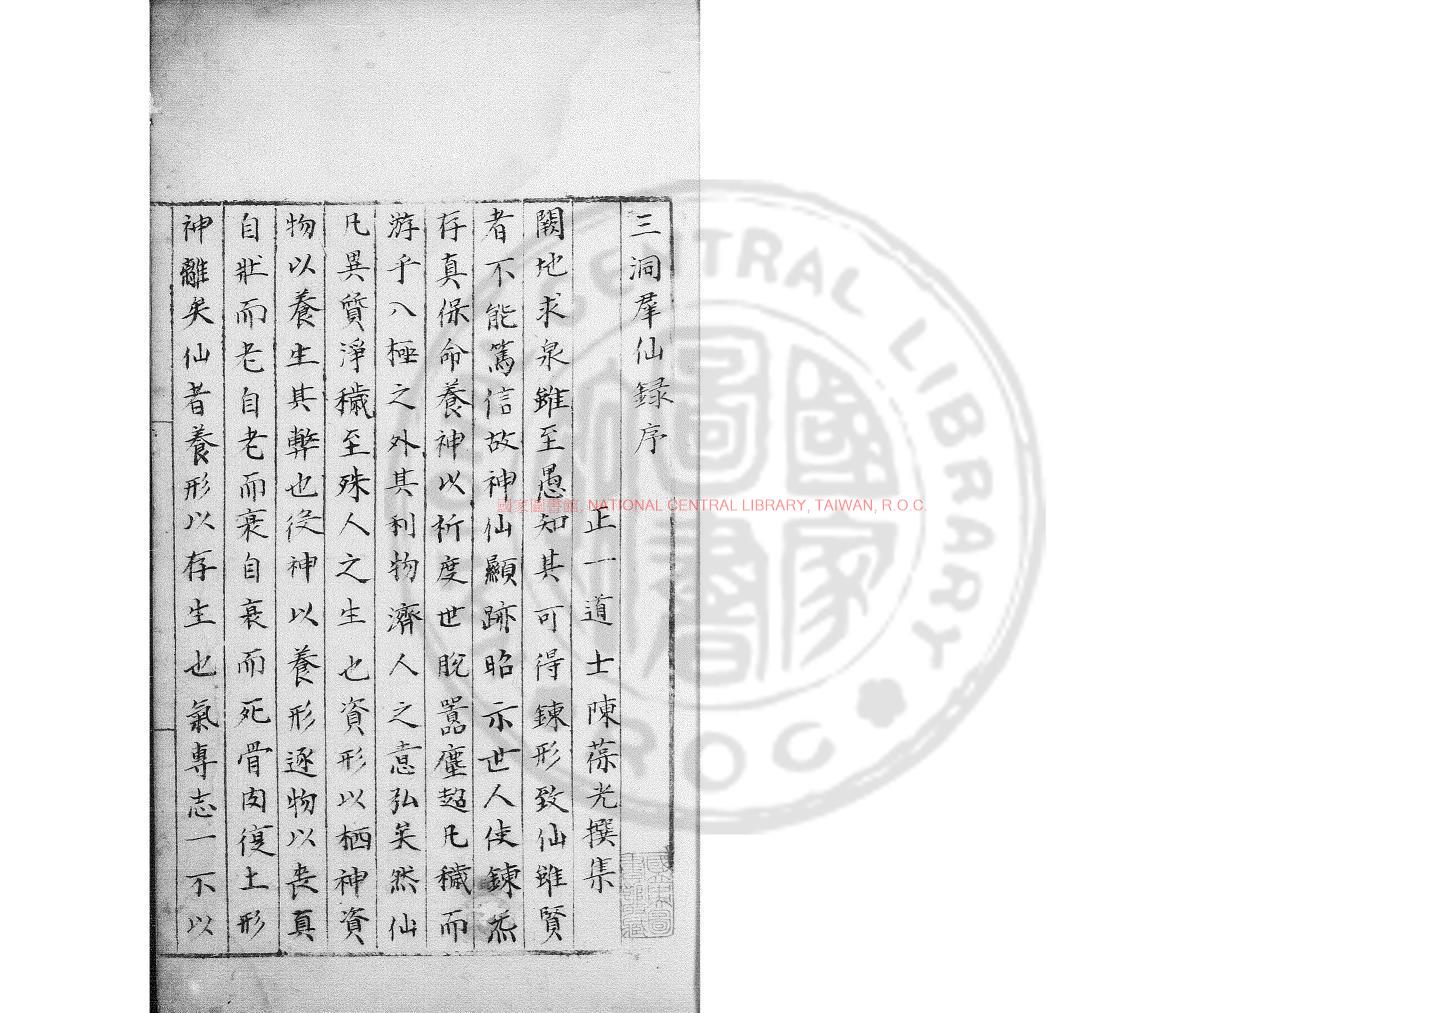 三洞羣仙録序
正一道士陳葆光撰集
闕地求泉雖至愚知其可得鍊形致仙雖賢
者不能篤信故神仙顯跡昭示世人使鍊炁
存真保命養神以祈度世脫囂塵超凡穢而
游乎八極之外其利物濟人之意弘矣然仙
凡異質淨穢至殊人之生也資形以栖神資
物以養生其弊也役神以養形逐物以喪真
自壯而老自老而衰自衰而死骨肉復土形
神離矣仙者養形以存生也氣專志一不以
國家圖書館, NATIONAL CENTRAL LIBRARY, TAIWAN, R.O.C.
CENTRAL LIBRARY
ROC
國家圖書